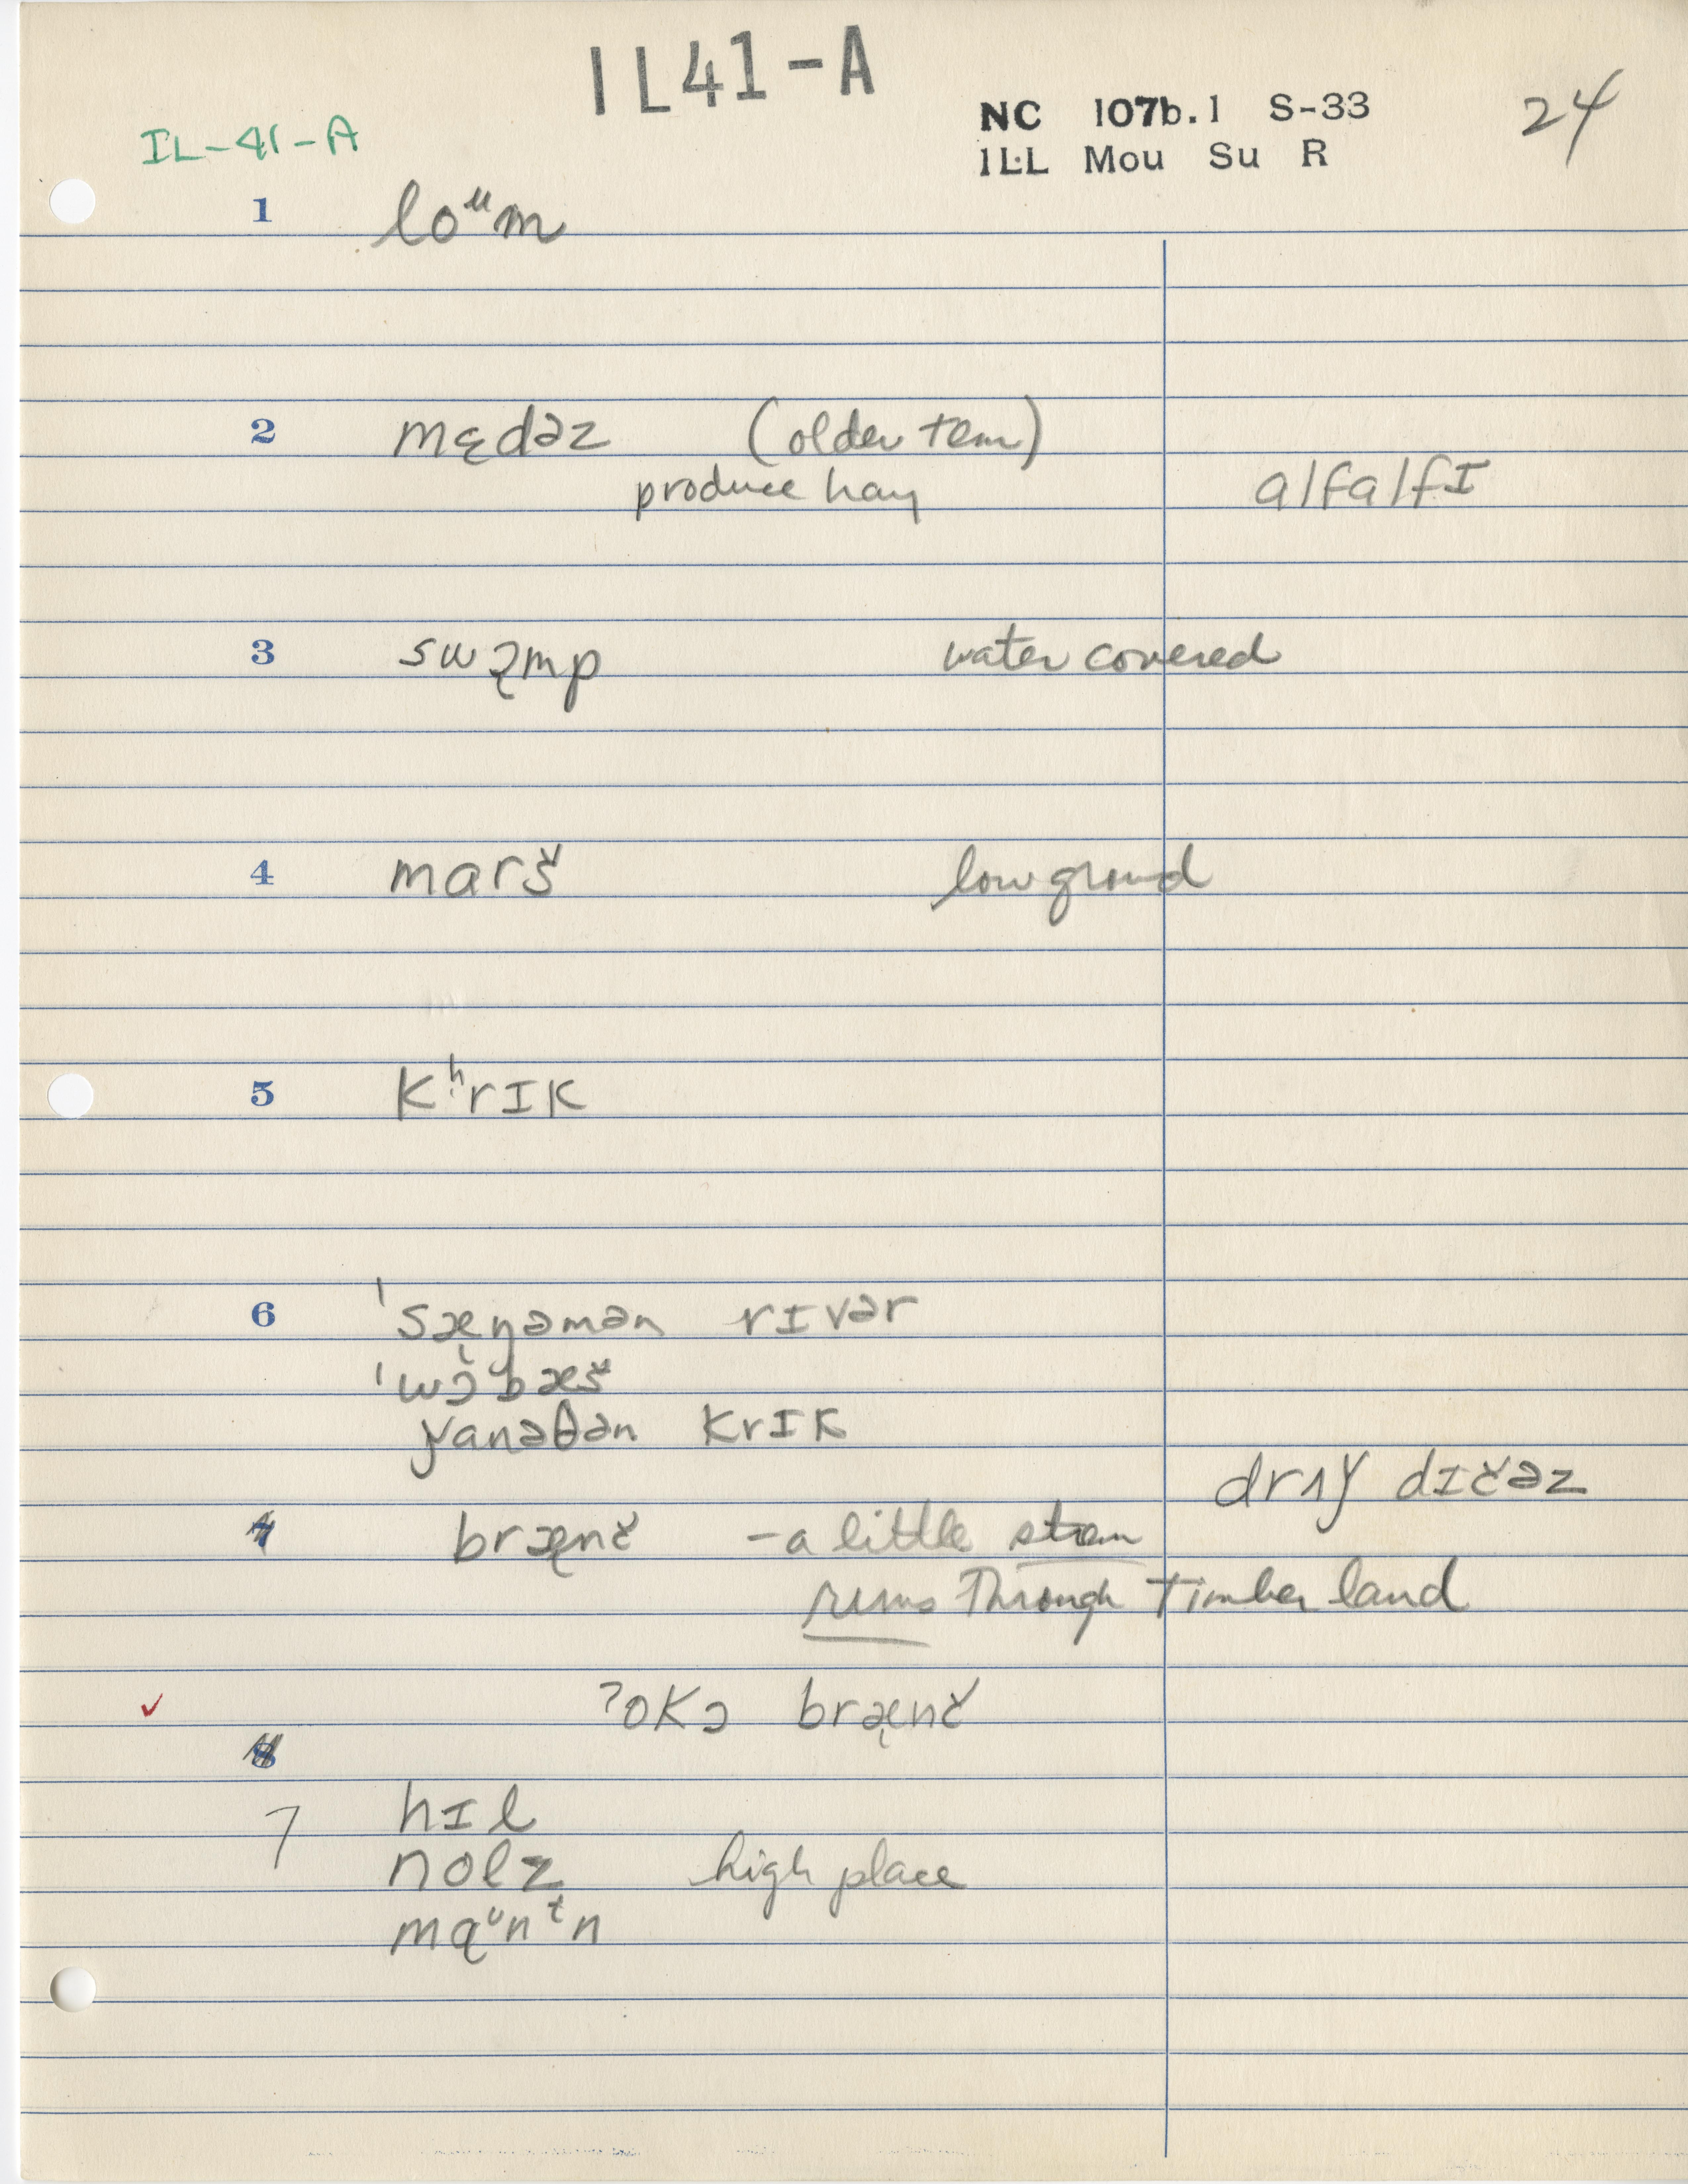 IL41-A
NC 107b.1 S-33
ILL Mou Su R
24
IL-41-A
1 loᵘm
2 mɛ̨dəz (older term)
produce hay
alfalfɪ
3 swɔ̨mp water covered
4 marš low ground
5 kʰrɪk
6 ˈsæŋəmən rɪvər
ˈwɔ̨bæš
krɪk
draɪ dɪčəz
7 bræ̨nč - a little stream
runs through timber land
ʔokɔ bræ̨nč
8
7 hɪl
nolz high place
mąᵘnᵗn